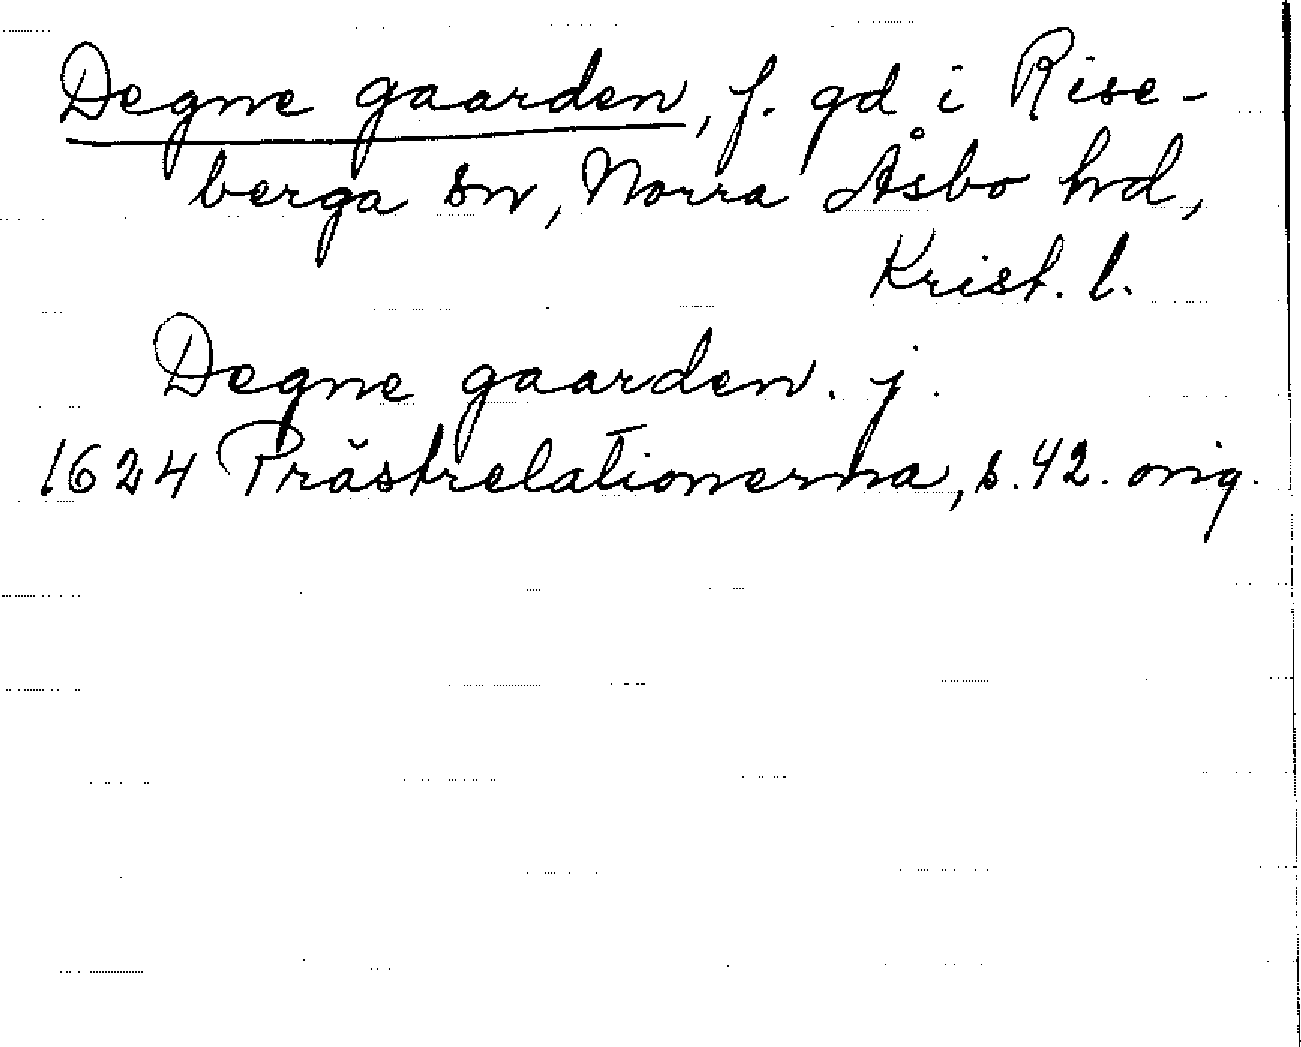 Degne gaarden, f. gd i Rise-
berga sn, Norra Åsbo hd,
Krist. l.
Degne gaarden. j.
1624 Prästrelationerna, s. 42. orig.